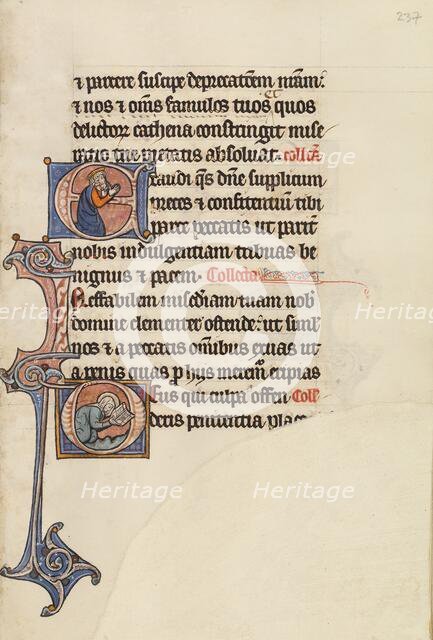 237
⁊ parcere suscipe deprecatõem nr̃am:
et
⁊ nos ⁊ om̃s famulos tuos quos
delictor̃ cathena constringit mise
ratio tue pietatis absoluat. collc̃a
Exaudi qs̃ dñe supplicum
preces ⁊ confitentiũ tibi
parce peccatis ut parit̃
nobis indulgentiam tribuas be
nignus ⁊ pacem. Collecta
Ineffabilem mĩam tuam nob̃
domine clementer ostende: ut siml̃
nos ⁊ a peccatis omĩbus exuas ut
a penis quas p̃ hiis meremr̃ eripias
Deus qui culpa offen Coll̃
deris penitentia place
Heritage Heritage
Heritage Heritage
Heritage Heritage